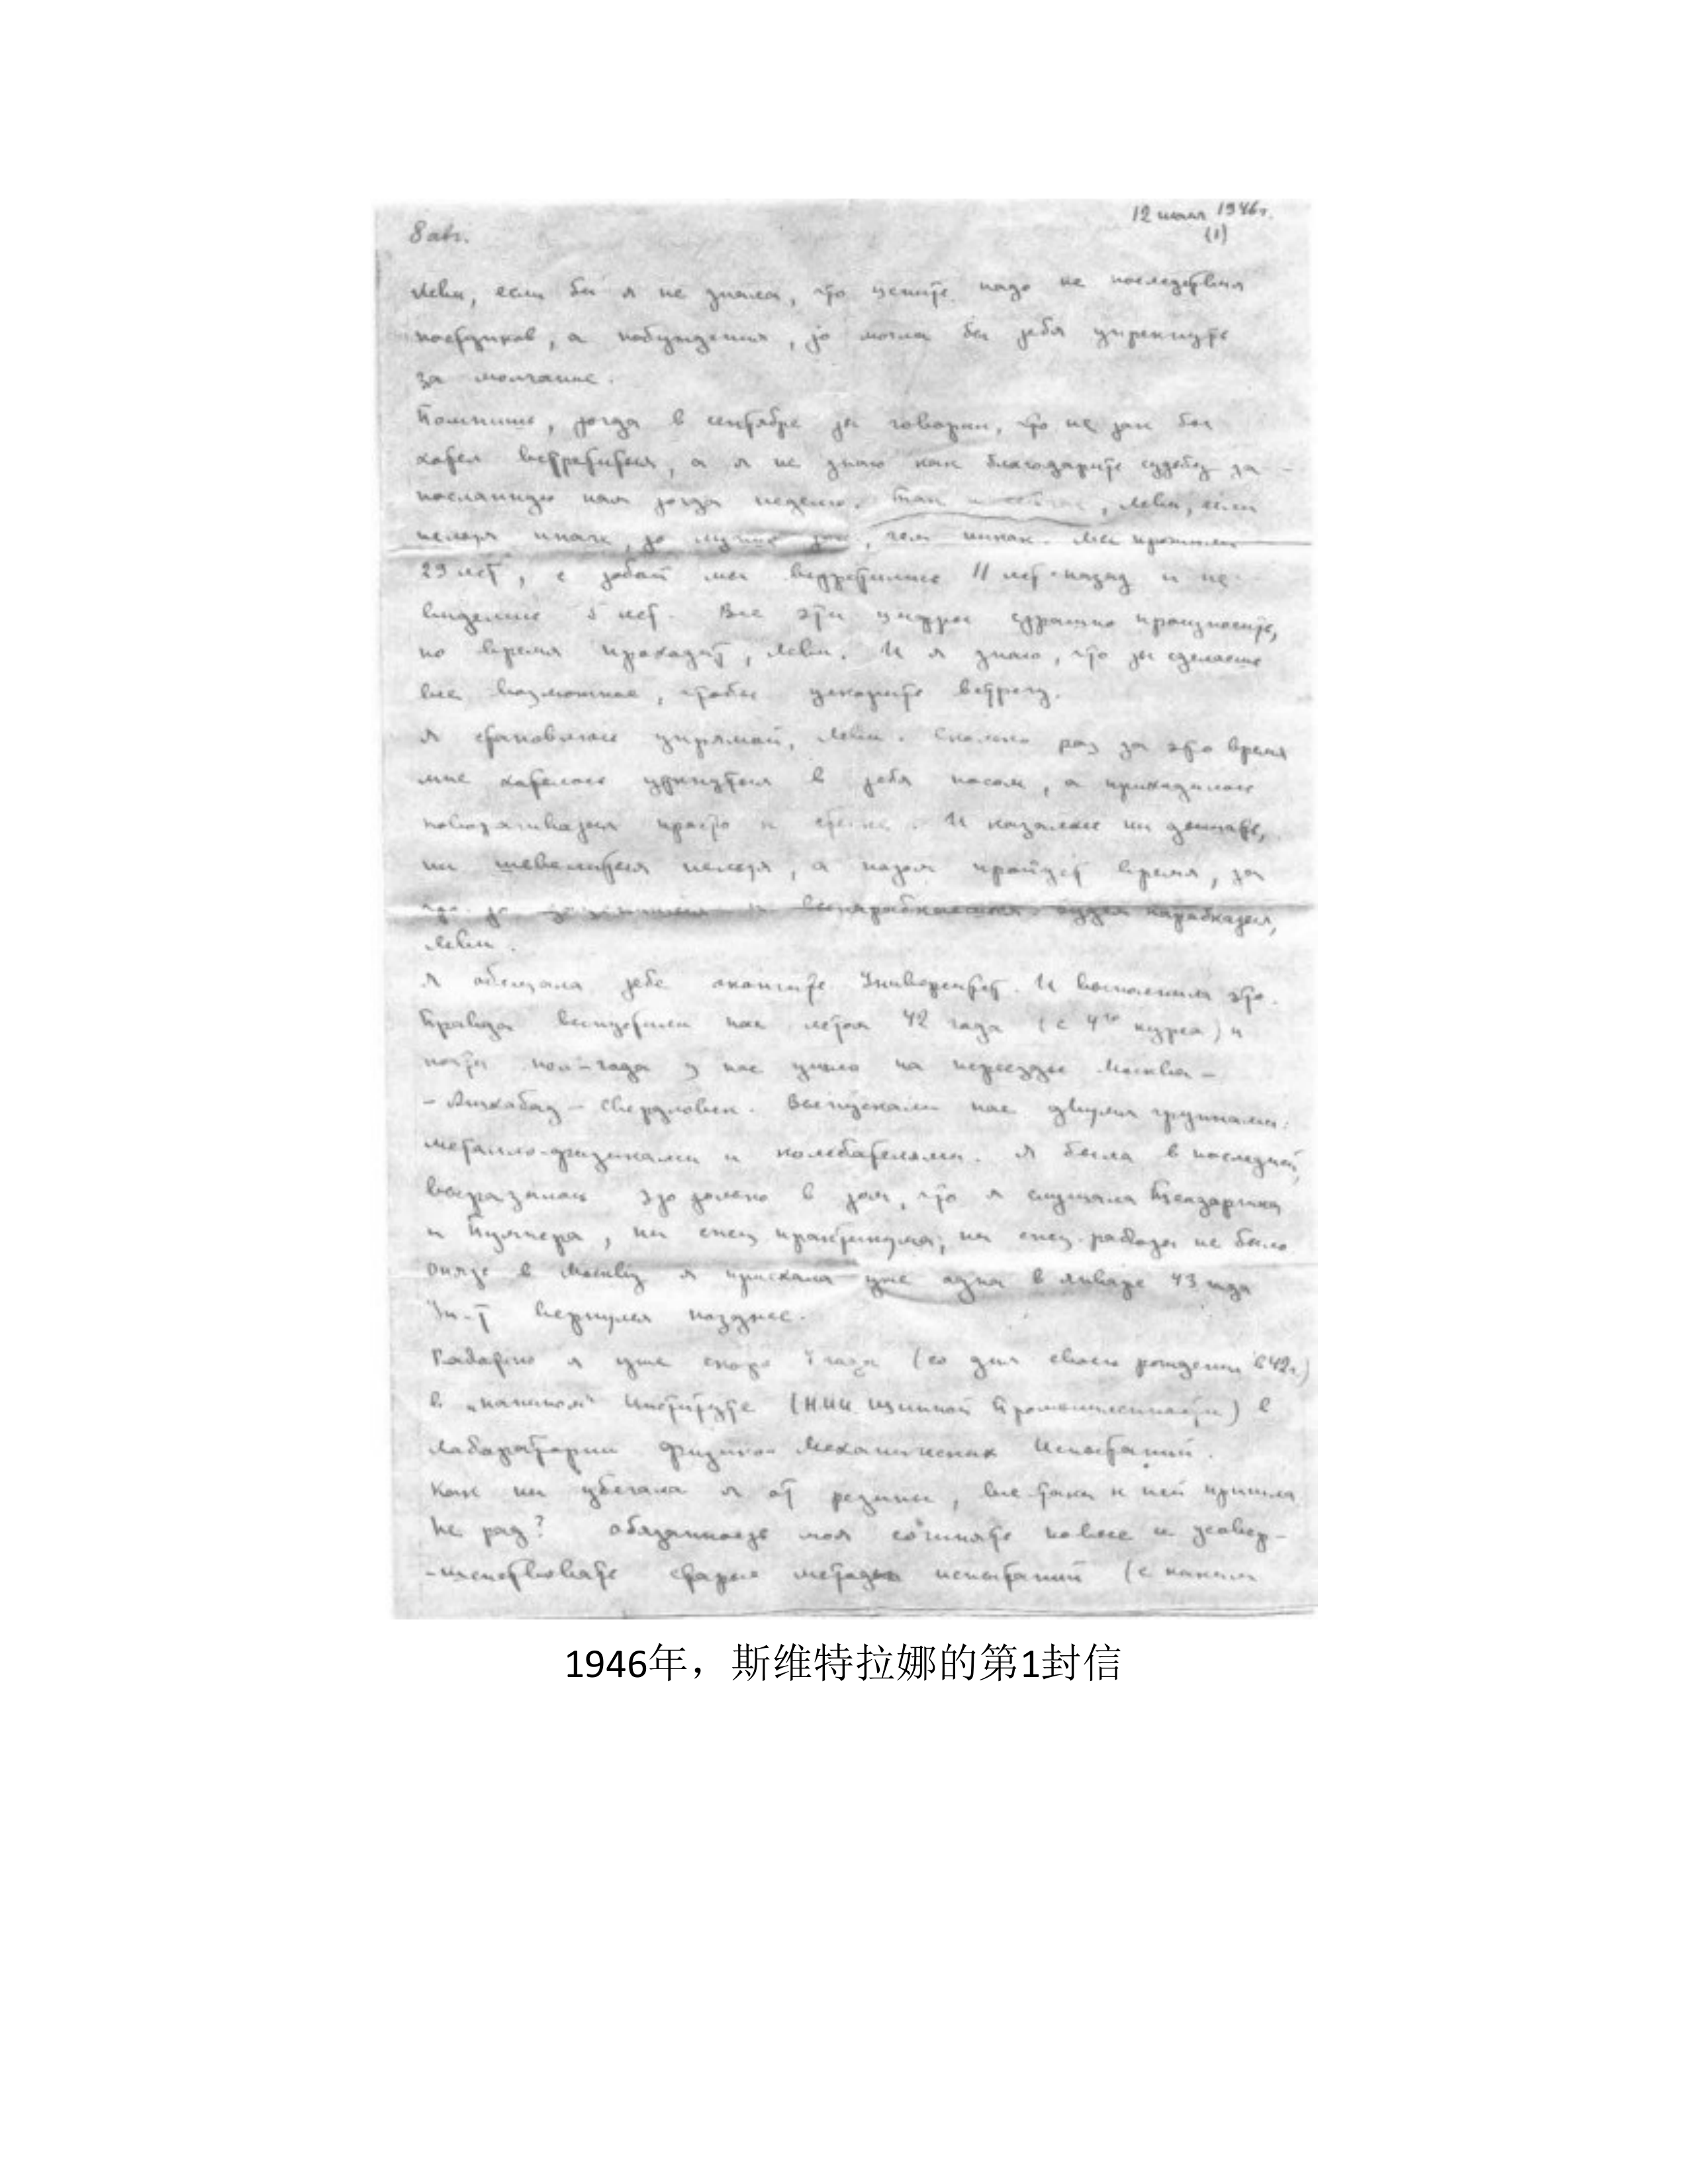 12 июля 1946г.
8 авг. (1)
Леви, если бы я не знала, что ценить надо не последствия
поступков, а побуждения, то могла бы тебя упрекнуть
за молчание.
Помнишь, тогда в сентябре ты говорил, что не так бы
хотел встретиться, а я не знаю как благодарить судьбу за
посланную нам тогда неделю. Так и сейчас, Леви, если
нельзя иначе, то лучше так, чем никак. Мы прожили
29 лет, с тобой мы встретились 11 лет назад и не
виделись 5 лет. Все эти цифры страшно произносить,
но время проходит, Леви. И я знаю, что ты сделаешь
все возможное, чтобы ускорить встречу.
Я становлюсь упрямой, Леви. Сколько раз за это время
мне хотелось уткнуться в тебя носом, а приходилось
просто к стене. И казалось ни дышать,
ни шевелиться нельзя, а потом пройдет время,
Будем карабкаться,
Леви.
Я обещала тебе окончить Университет. И выполнила это.
Правда выпустили нас летом 42 года (с 4го курса) и
почти пол-года у нас ушло на переезды Москва –
– Ашхабад – Свердловск. Выпускали нас двумя группами:
металло-физиками и колебателями. Я была в последней,
выразилось это только в том, что я слушала
и , ни спец практикума, ни спец. работы не было
Опять в Москву я приехала уже одна в январе 43 года
Ун-т вернулся позднее.
Работаю я уже скоро 4 года (со дня своего рождения в 42г.)
в "папином" Институте (НИИ Шинной Промышленности) в
лаборатории Физико-Механических Испытаний.
Как ни убегала я от резины, все таки к ней пришла
Не рад? Обязанность моя сочинять новые и усовер-
-шенствовать старые методы испытаний (с каким
1946年，斯维特拉娜的第1封信